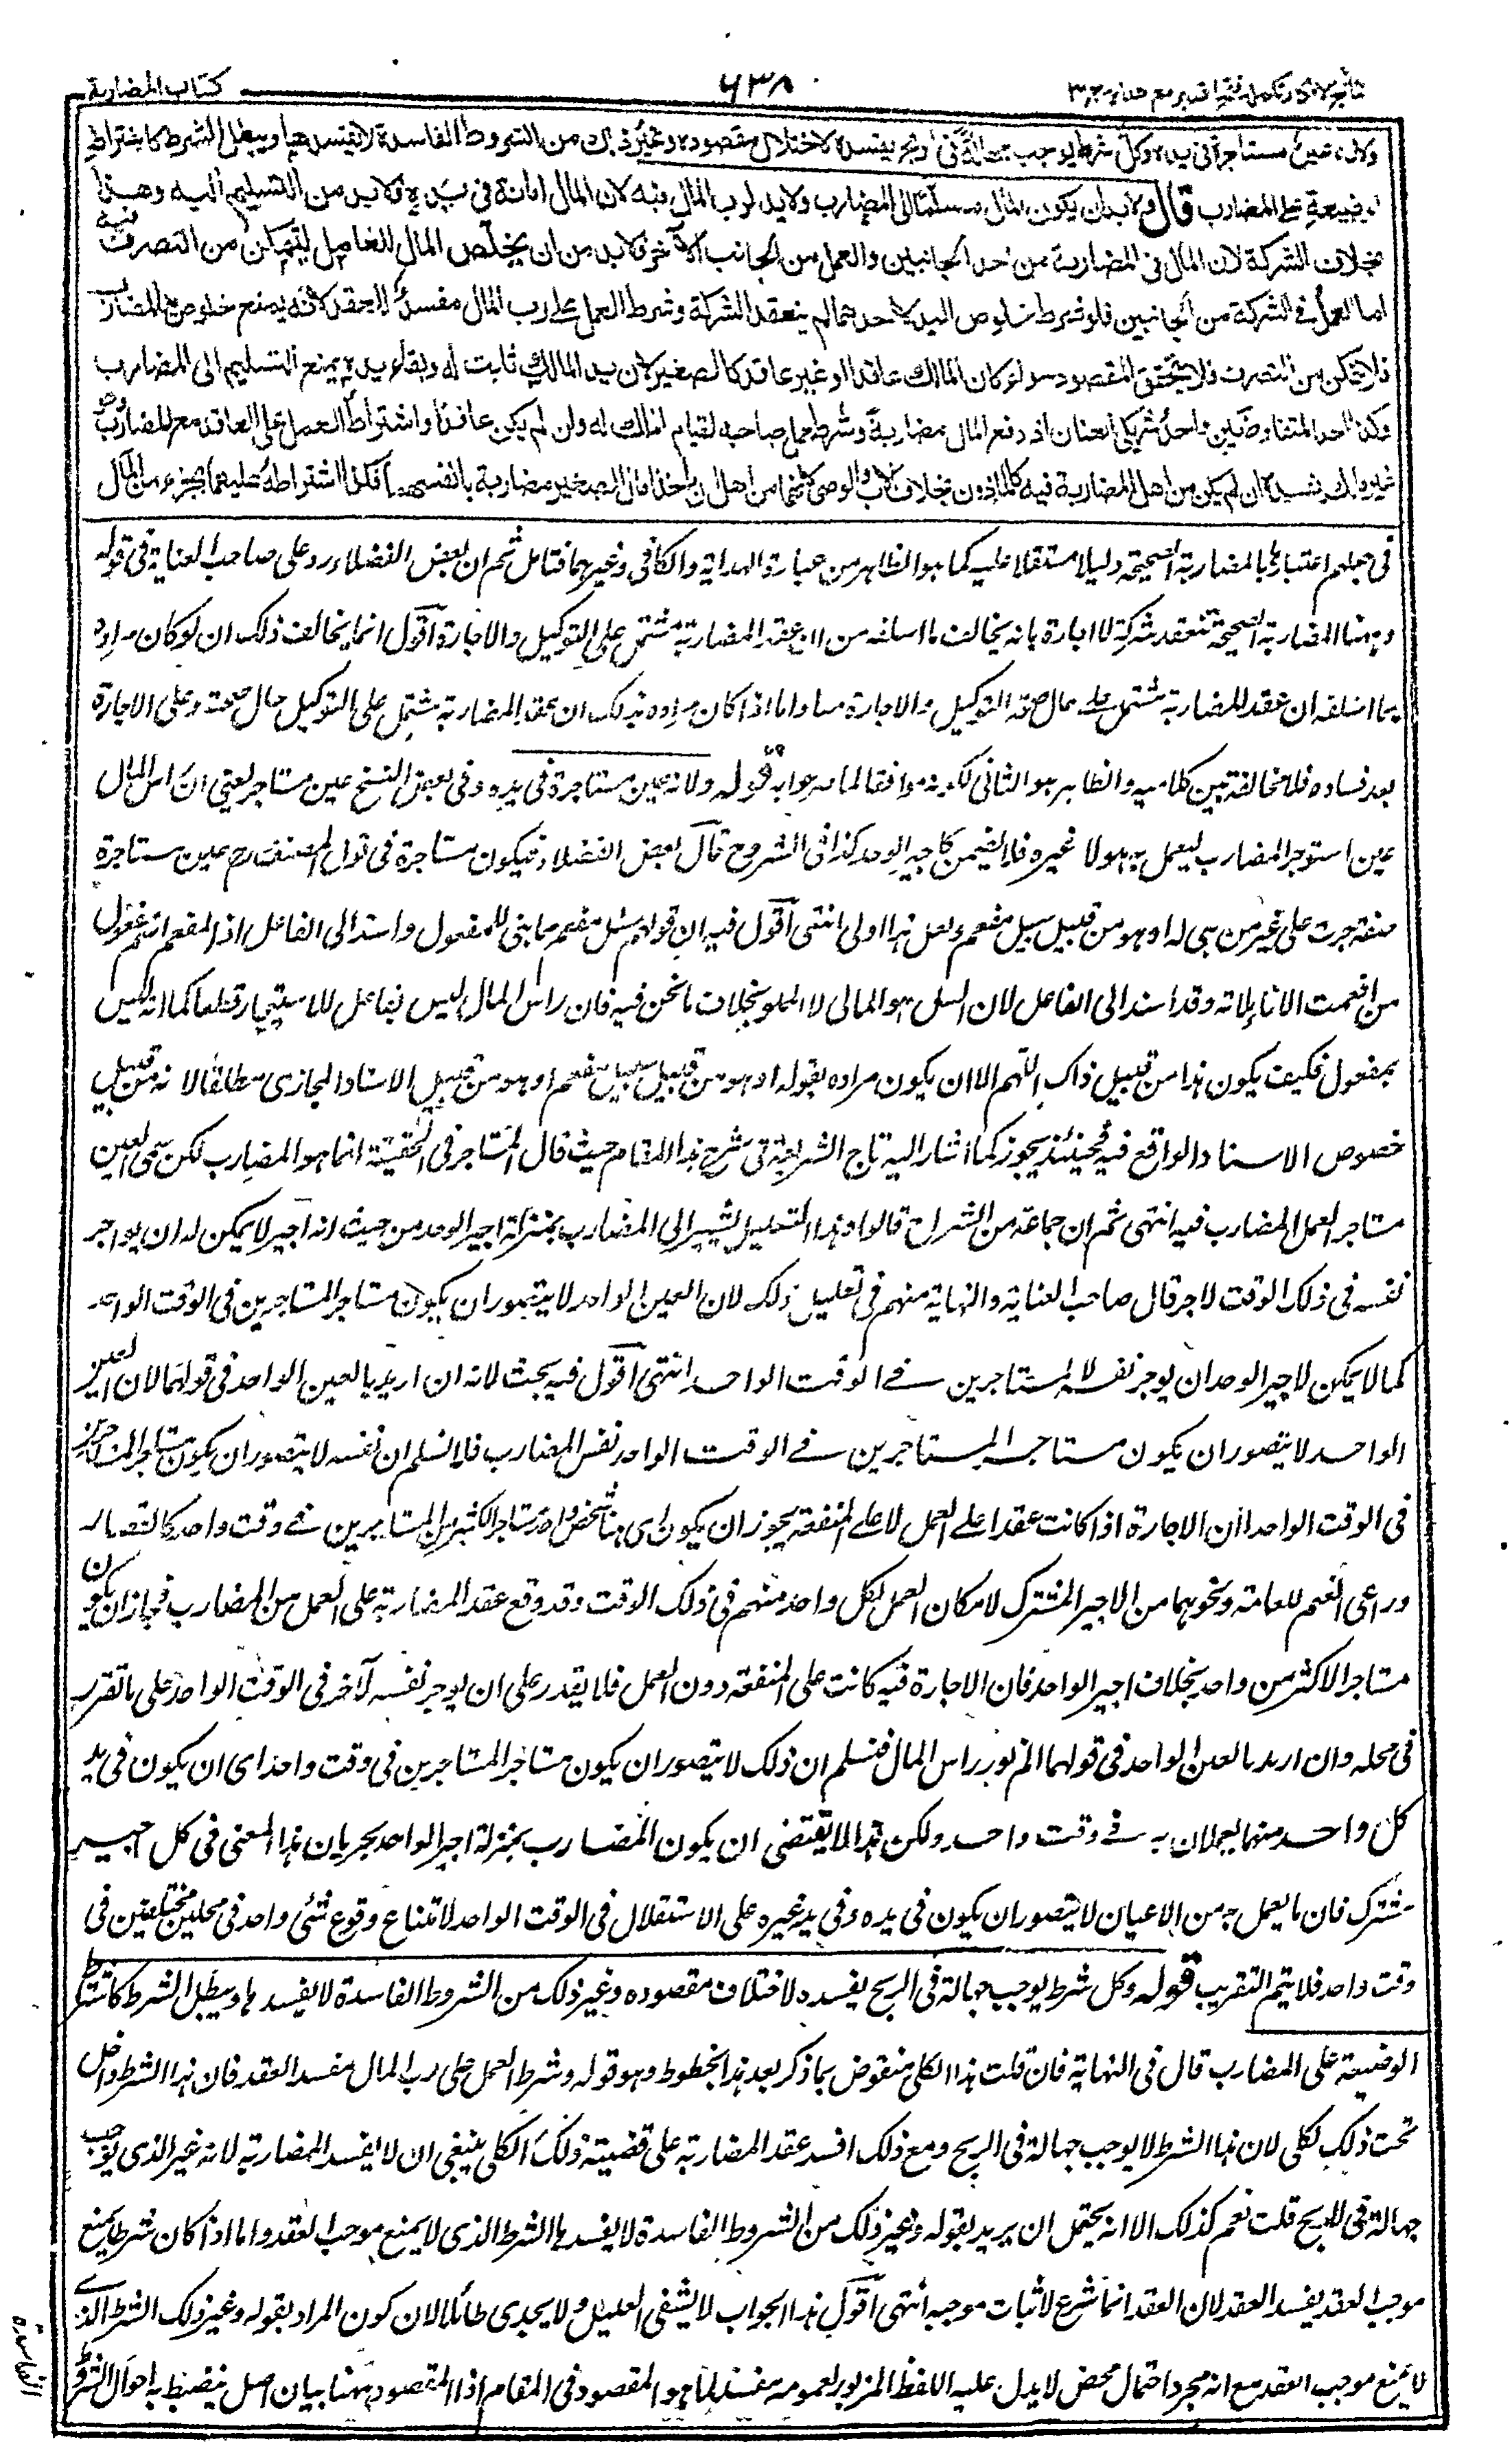 كتاب المضاربة
٦٣٨
نتائج الافكار تكملة فتح القدير مع هداية ج ٣
ولانه عين مستاجرة في يده وكل شرط يوجب جهالة في الربح يفسده لاختلال مقصوده وغير ذلك من الشروط الفاسدة لا يفسدها ويبطل الشرط كاشتراط
الوضيعة على المضارب قال ولا بد ان يكون المال مسلما الى المضارب ولا يد لرب المال فيه لان المال امانة في يده فلا بد من التسليم اليه وهذا
بخلاف الشركة لان المال في المضاربة من احد الجانبين والعمل من الجانب الآخر فلا بد من ان يخلص المال للعامل ليتمكن من التصرف فيه
اما العمل في الشركة من الجانبين فلو شرط خلوص اليد لاحدهما لم ينعقد الشركة وشرط العمل على رب المال مفسد للعقد لانه يمنع خلوص يد المضارب
فلا يتمكن من التصرف فلا يتحقق المقصود سواء كان المالك عاقدا او غير عاقد كالصغير لان يد المالك ثابت له وبقاء يده يمنع التسليم الى المضارب
وكذا احد المتفاوضين واحد شريكي العنان اذا دفع المال مضاربة وشرط عمل صاحبه لقيام الملك له وان لم يكن عاقدا واشتراط العمل على العاقد مع المضارب وهو
غير مالك يفسده ان لم يكن من اهل المضاربة فيه كالماذون بخلاف الاب والوصي لانهما من اهل ان ياخذا مال الصغير مضاربة بانفسهما فكذا اشتراطه عليهما بجزء من المال
في جعلهم اعتبارها بالمضاربة الصحيحة دليلا مستقلا عليه كما هو الظاهر من عبارة الهداية والكافي وغيرهما فتامل ثم ان بعض الفضلاء رد على صاحب العناية في قوله
وههنا المضاربة الصحيحة تنعقد شركة لا اجارة بانه يخالف ما اسلفه من ان عقد المضاربة مشتمل على التوكيل والاجارة اقول انما يخالف ذلك ان لو كان مراده
بما اسلفه ان عقد المضاربة مشتمل على حال صحة التوكيل والاجارة معا واما اذا كان مراده بذلك ان عقد المضاربة يشتمل على التوكيل حال صحته وعلى الاجارة
بعد فساده فلا مخالفة بين كلاميه والظاهر هو الثاني لكونه موافقا لما صرحوا به قوله ولانه عين مستاجرة في يده وفي بعض النسخ عين مستاجر يعني ان راس المال
عين استوجر المضارب ليعمل به هو لا غيره فلا يضمن كاجير الوحد كذا في الشروح قال بعض الفضلاء فيكون مستاجرة في قول المصنف رح عين مستاجرة
صفة جرت على غير من هي له او هو من قبيل سيل مفعم ولعل هذا اولى انتهى اقول فيه ان قولهم سيل مفعم مما بني للمفعول واسند الى الفاعل اذ المفعم اسم مفعول
من افعمت الاناء ملاته وقد اسند الى الفاعل لان السيل هو المالي لا المملو بخلاف ما نحن فيه فان راس المال ليس بفاعل للاستيجار قطعا كما انه ليس
بمفعول فكيف يكون هذا من قبيل ذاك اللهم الا ان يكون مراده بقوله او هو من قبيل سيل مفعم او هو من قبيل الاسناد المجازي مطلقا لا انه من قبيل
خصوص الاسناد الواقع فيه فحينئذ يجوز كما اشار اليه تاج الشريعة في شرح هذا المقام حيث قال المستاجر في الحقيقة انما هو المضارب لكن سمى العين
مستاجر العمل المضارب فيه انتهى ثم ان جماعة من الشراح قالوا وهذا التعليل يشير الى المضارب بمنزلة اجير الوحد من حيث انه اجير لا يمكن له ان يواجر
نفسه في ذلك الوقت لآخر قال صاحب العناية والنهاية منهم في تعليل ذلك لان العين الواحد لا يتصور ان يكون مستاجرا لمستاجرين في الوقت الواحد
كما لا يمكن لاجير الوحد ان يوجر نفسه لمستاجرين في الوقت الواحد انتهى اقول فيه بحث لانه ان اريد بالعين الواحد في قولهما لان العين
الواحد لا يتصور ان يكون مستاجرا لمستاجرين في الوقت الواحد نفس المضارب فلا نسلم ان نفسه لا يتصور ان يكون مستاجرا لمستاجرين
في الوقت الواحد اذ ان الاجارة اذا كانت عقدا على العمل لا على المنفعة يجوز ان يكون اي شخص واحد مستاجرا لكثير من المستاجرين في وقت واحد كالقصار
وراعي الغنم للعامة ونحوهما من الاجير المشترك لامكان العمل لكل واحد منهم في ذلك الوقت وقد وقع عقد المضاربة على العمل من المضارب فجاز ان يكون
مستاجرا لاكثر من واحد بخلاف اجير الواحد فان الاجارة فيه كانت على المنفعة دون العمل فلا يقدر على ان يوجر نفسه لآخر في الوقت الواحد على ما تقرر
في محله وان اريد بالعين الواحد في قولهما المزبور راس المال فنسلم ان ذلك لا يتصور ان يكون مستاجرا لمستاجرين في وقت واحد اي ان يكون في يد
كل واحد منهما يعملان به في وقت واحد ولكن هذا لا يقتضي ان يكون المضارب بمنزلة اجير الواحد لجريان هذا المعنى في كل اجير
مشترك فان ما يعمل به من الاعيان لا يتصور ان يكون في يده وفي يد غيره على الاستقلال في الوقت الواحد لامتناع وقوع شئ واحد في محلين مختلفين في
وقت واحد فلا يتم التقريب قوله وكل شرط يوجب جهالة في الربح يفسده لاختلاف مقصوده وغير ذلك من الشروط الفاسدة لا يفسدها ويبطل الشرط كاشتراط
الوضيعة على المضارب قال في النهاية فان قلت هذا الكلي منقوض بما ذكر بعد هذا بخطوط وهو قوله وشرط العمل على رب المال مفسد العقد فان هذا الشرط داخل
تحت ذلك الكلي لان هذا الشرط لا يوجب جهالة في الربح ومع ذلك افسد عقد المضاربة على قضية ذلك الكلي ينبغي ان لا يفسد المضاربة لانه غير الذي يوجب
جهالة في الربح قلت نعم كذلك الا انه يحتمل ان يريد بقوله وغير ذلك من الشروط الفاسدة لا يفسدها الشرط الذي لا يمنع موجب العقد واما اذا كان شرطا يمنع
موجب العقد يفسد العقد لان العقد انما شرع لاثبات موجبه انتهى اقول هذا الجواب لا يشفي العليل ولا يجدي طائلا لان كون المراد بقوله وغير ذلك الشرط الذي
لا يمنع موجب العقد مع انه مجرد احتمال محض لا يدل عليه اللفظ المزبور لعمومه مفسد لما هو المقصود في المقام اذ المقصود ههنا بيان اصل ينضبط به احوال الشروط
الفاسدة